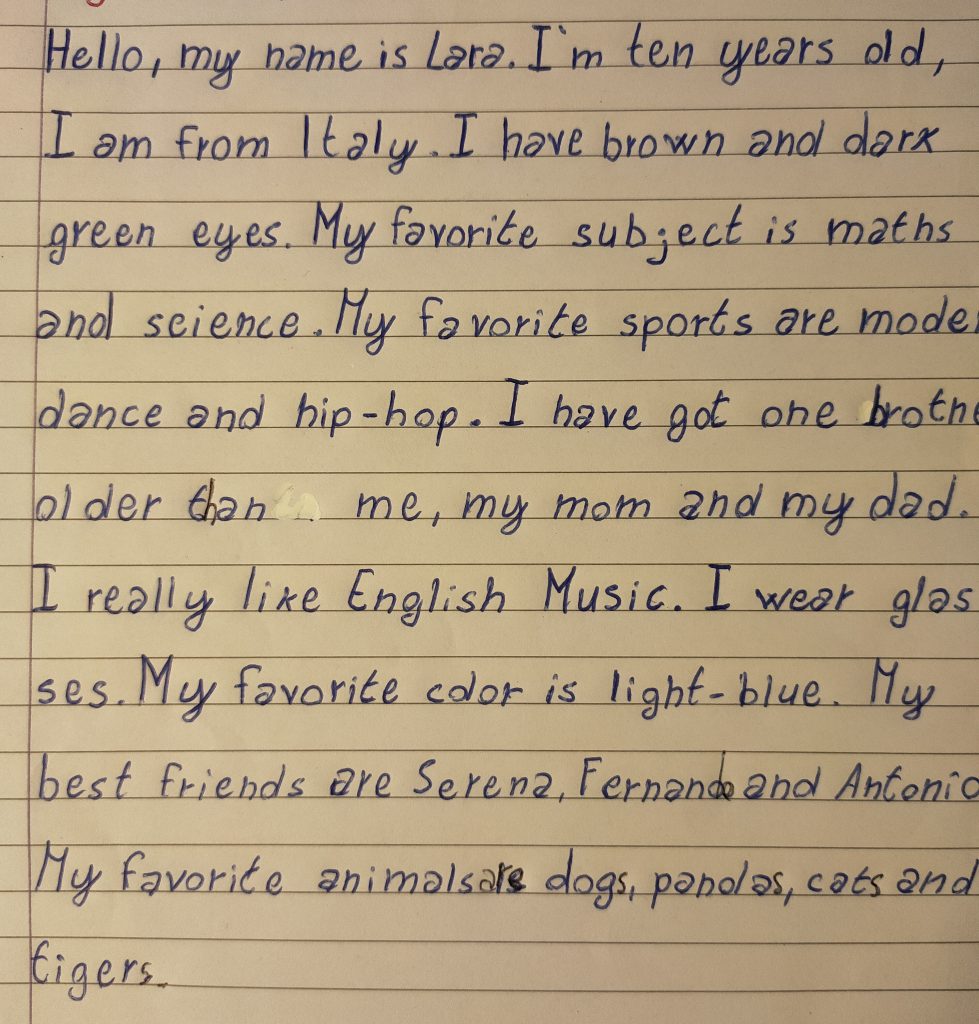 Hello, my name is Lara. I'm ten years old,
I am from Italy. I have brown and dark
green eyes. My favorite subject is maths
and science. My favorite sports are mode
dance and hip-hop. I have got one brothe
older than me, my mom and my dad.
I really like English Music. I wear glas
ses. My favorite color is light-blue. My
best friends are Serena, Fernando and Antonio
My favorite animals are dogs, pandas, cats and
tigers.